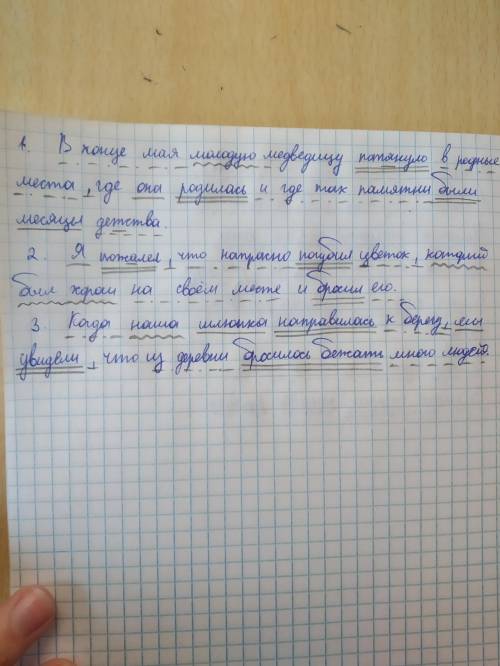 1. В конце мая молодую медведицу потянуло в родные
места, где она родилась и где так памятны были
месяцы детства.
2. Я пожалел, что напрасно погубил цветок, который
был хорош на своём месте и бросил его.
3. Когда наша шлюпка направилась к берегу, мы
увидели, что из деревни бросилось бежать много людей.